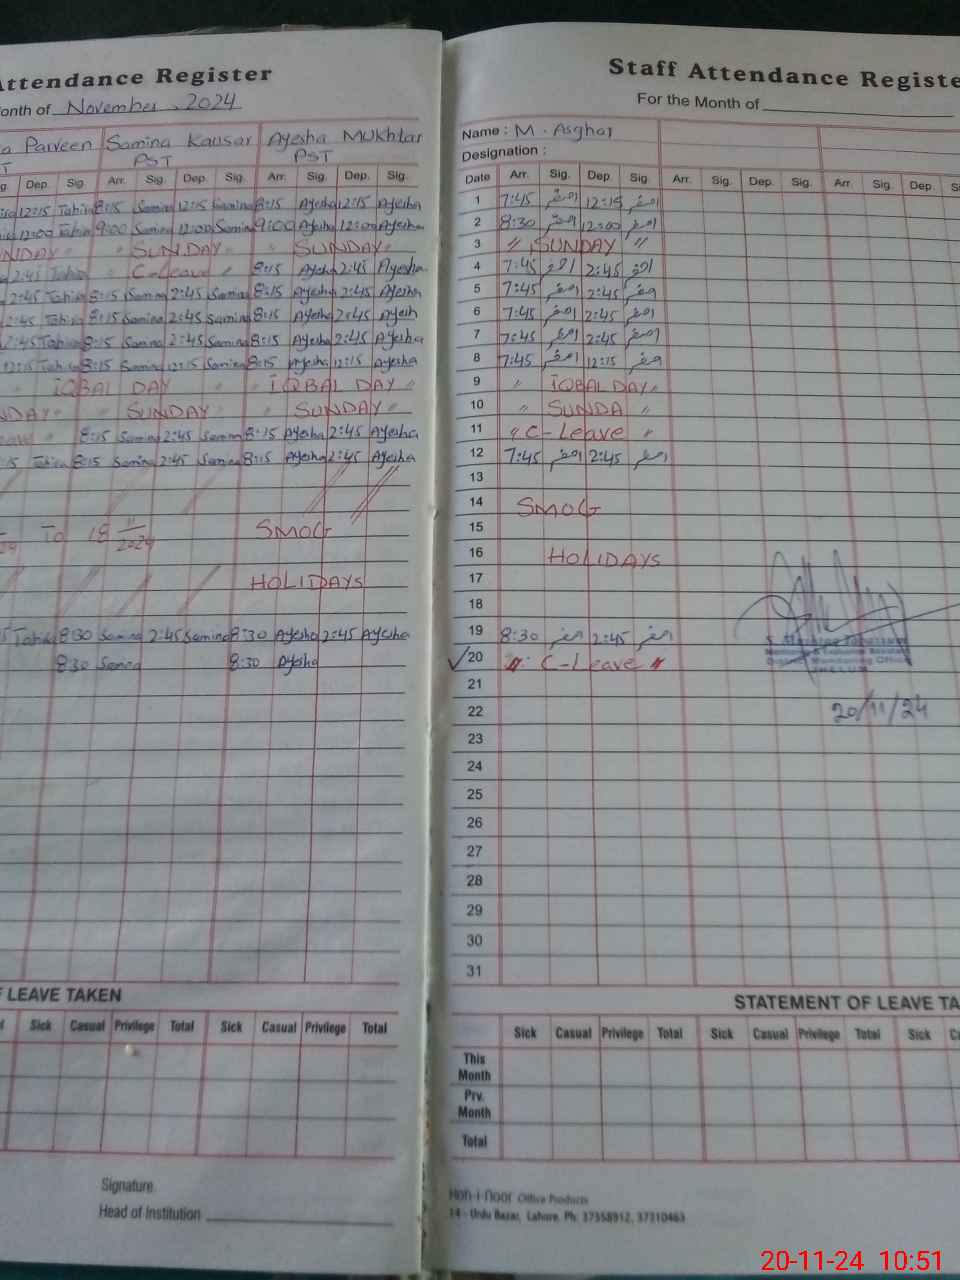 Attendance Register
onth of November, 2024
a Parveen Samina Kausar Ayesha Mukhtar
PST PST
Dep. Sig. Arr. Sig. Dep. Sig. Arr. Sig. Dep. Sig.
12:15 Tahira 8:15 Samina 12:15 Samina 8:15 Ayesha 12:15 Ayesha
12:00 Tahira 9:00 Samina 12:00 Samina 9:00 Ayesha 12:00 Ayesha
NDAY " " SUNDAY " " SUNDAY "
2:45 Tahira " C-Leave " 8:15 Ayesha 2:45 Ayesha
2:45 Tahira 8:15 Samina 2:45 Samina 8:15 Ayesha 2:45 Ayesha
2:45 Tahira 8:15 Samina 2:45 Samina 8:15 Ayesha 2:45 Ayesh
2:45 Tahira 8:15 Samina 2:45 Samina 8:15 Ayesha 2:45 Ayesha
12:15 Tahira 8:15 Samina 12:15 Samina 8:15 Ayesha 12:15 Ayesha
" IQBAL DAY " " IQBAL DAY "
NDAY " " SUNDAY " " SUNDAY "
eave " 8:15 Samina 2:45 Samina 8:15 Ayesha 2:45 Ayesha
:15 Tahira 8:15 Samina 2:45 Samina 8:15 Ayesha 2:45 Ayesha
To 18/11/2024 SMOG
HOLIDAYS
Tahira 8:30 Samina 2:45 Samina 8:30 Ayesha 2:45 Ayesha
8:30 Samina 8:30 Ayesha
F LEAVE TAKEN
Sick Casual Privilege Total Sick Casual Privilege Total
Signature
Head of Institution
Staff Attendance Registe
For the Month of
Name : M. Asghar
Designation :
Date Arr. Sig. Dep. Sig. Arr. Sig. Dep. Sig. Arr. Sig. Dep. S
1 7:45 اصغر 12:15 اصغر
2 8:30 اصغر 12:00 اصغر
3 " SUNDAY "
4 7:45 اصغر 2:45 اصغر
5 7:45 اصغر 2:45 اصغر
6 7:45 اصغر 2:45 اصغر
7 7:45 اصغر 2:45 اصغر
8 7:45 اصغر 12:15 اصغر
9 " IQBAL DAY "
10 " SUNDA "
11 " C-Leave "
12 7:45 اصغر 2:45 اصغر
13
14 SMOG
15
16 HOLIDAYS
17
18
19 8:30 اصغر 2:45 اصغر
20 " C-Leave "
21
22 20/11/24
23
24
25
26
27
28
29
30
31
STATEMENT OF LEAVE TA
Sick Casual Privilege Total Sick Casual Privilege Total Sick
This Month
Prv. Month
Total
Koh-i-noor Office Products
14 - Urdu Bazar, Lahore. Ph: 37358912, 37310463
20-11-24 10:51